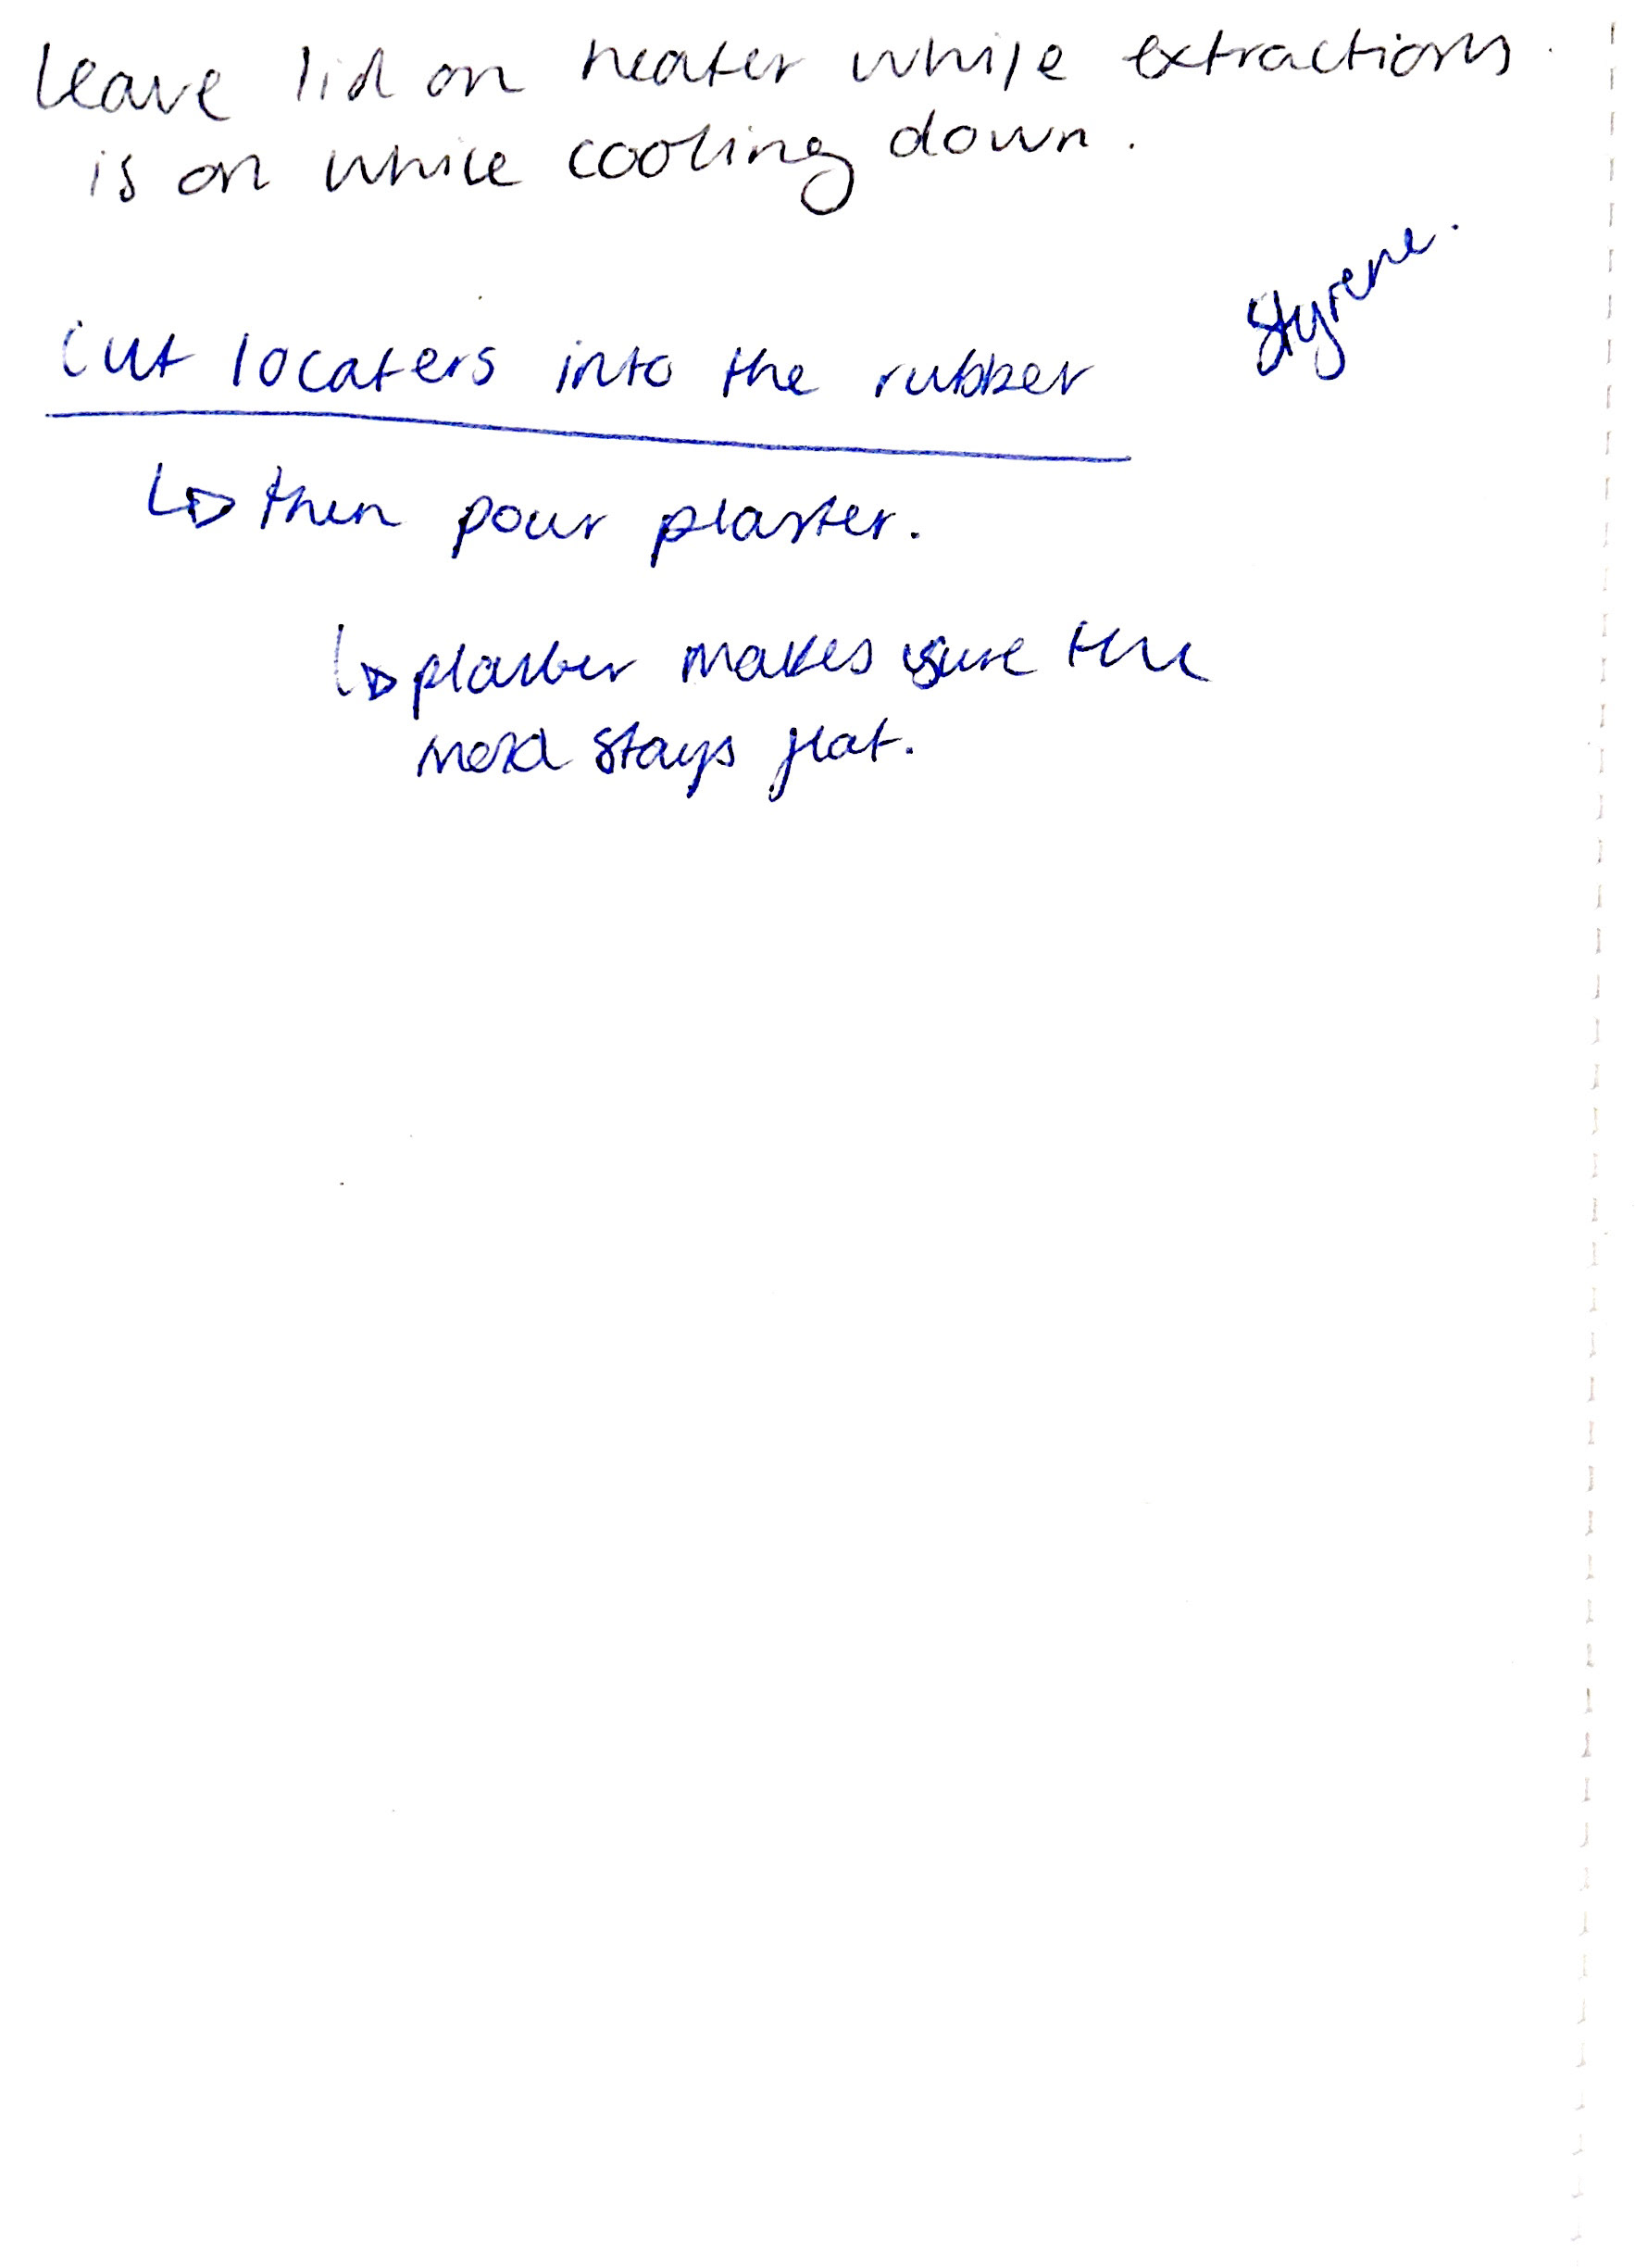 leave lid on heater while extractions
is on while cooling down.
styrene.
cut locaters into the rubber
↳ then pour plaster.
↳ plaster makes sure the
mold stays flat.